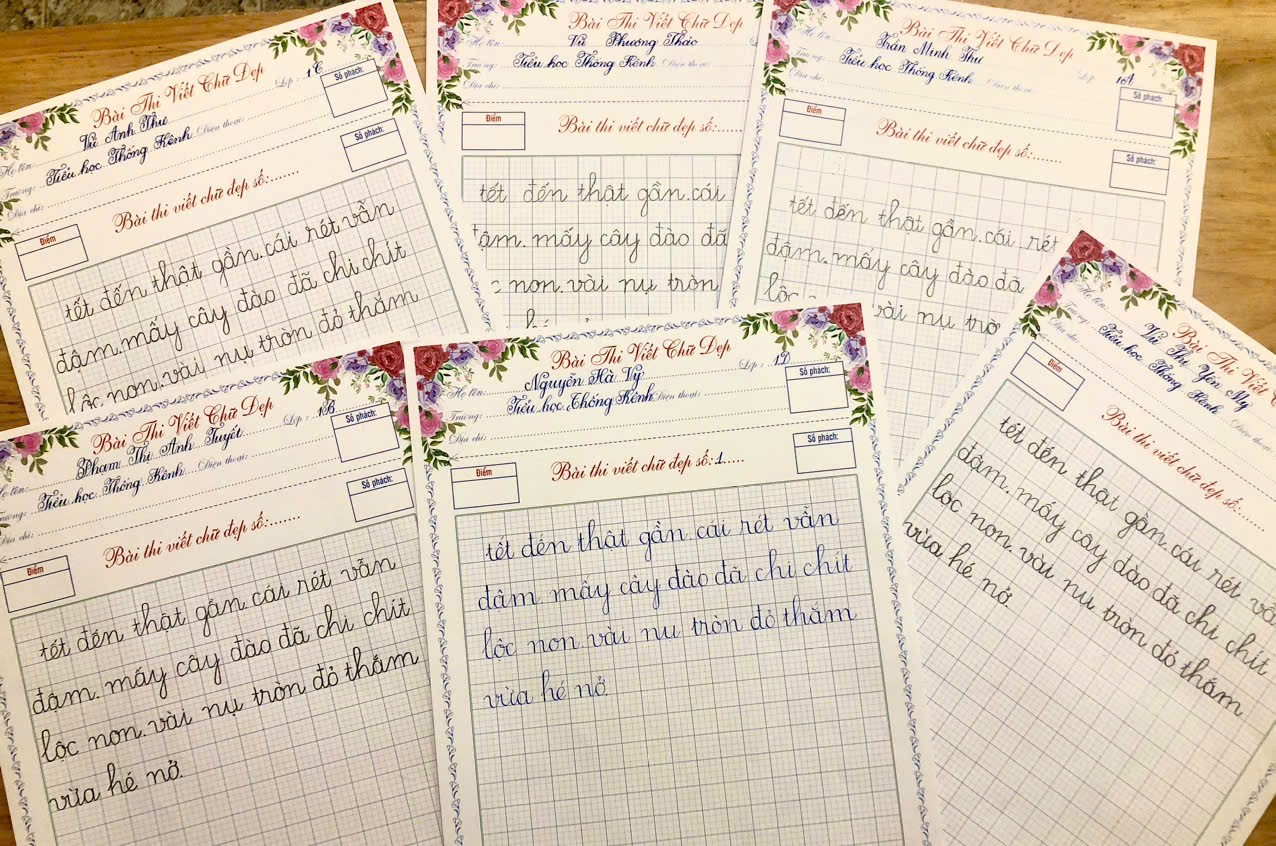 Bài Thi Viết Chữ Đẹp
Họ tên: Vũ Anh Thư Lớp: 1C
Trường: Tiểu học Thống Kênh Điện thoại:
Địa chỉ:
Số phách:
Số phách:
Bài thi viết chữ đẹp số:......
Điểm
tết đến thật gần.cái rét vẫn
đậm.mấy cây đào đã chi chít
lộc non.vài nụ tròn đỏ thắm
Bài Thi Viết Chữ Đẹp
Họ tên: Vũ Phương Thảo
Trường: Tiểu học Thống Kênh Điện thoại:
Địa chỉ:
Điểm
Bài thi viết chữ đẹp số:......
tết đến thật gần.cái
đậm.mấy cây đào đã
non.vài nụ tròn
hé
Bài Thi Viết Chữ Đẹp
Trần Minh Thư Lớp 1A
Trường: Tiểu học Thống Kênh Điện thoại:
Địa chỉ:
Số phách:
Điểm
Bài thi viết chữ đẹp số:......
Số phách:
tết đến thật gần.cái rét
đậm.mấy cây đào đã
lộc vài nụ trò
Bài Thi Viết Chữ Đẹp
Họ tên: Phạm Thị Ánh Tuyết Lớp: 1B
Trường: Tiểu học Thống Kênh Điện thoại:
Địa chỉ:
Số phách:
Số phách:
Bài thi viết chữ đẹp số:......
Điểm
tết đến thật gần.cái rét vẫn
đậm.mấy cây đào đã chi chít
lộc non.vài nụ tròn đỏ thắm
vừa hé nở.
Bài Thi Viết Chữ Đẹp
Họ tên: Nguyễn Hà Vy Lớp: 1D
Trường: Tiểu học Thống Kênh Điện thoại:
Địa chỉ:
Số phách:
Số phách:
Điểm
Bài thi viết chữ đẹp số:1.....
tết đến thật gần cái rét vẫn
đậm. mấy cây đào đã chi chít
lộc non vài nụ tròn đỏ thắm
vừa hé nở.
Bài Thi Viết C
Họ tên: Vũ Thị Yến My
Trường: Tiểu học Thống Kênh
Địa chỉ:
Điểm
Bài thi viết chữ đẹp số:......
tết đến thật gần.cái rét vẫ
đậm.mấy cây đào đã chi chít
lộc non.vài nụ tròn đỏ thắm
vừa hé nở.